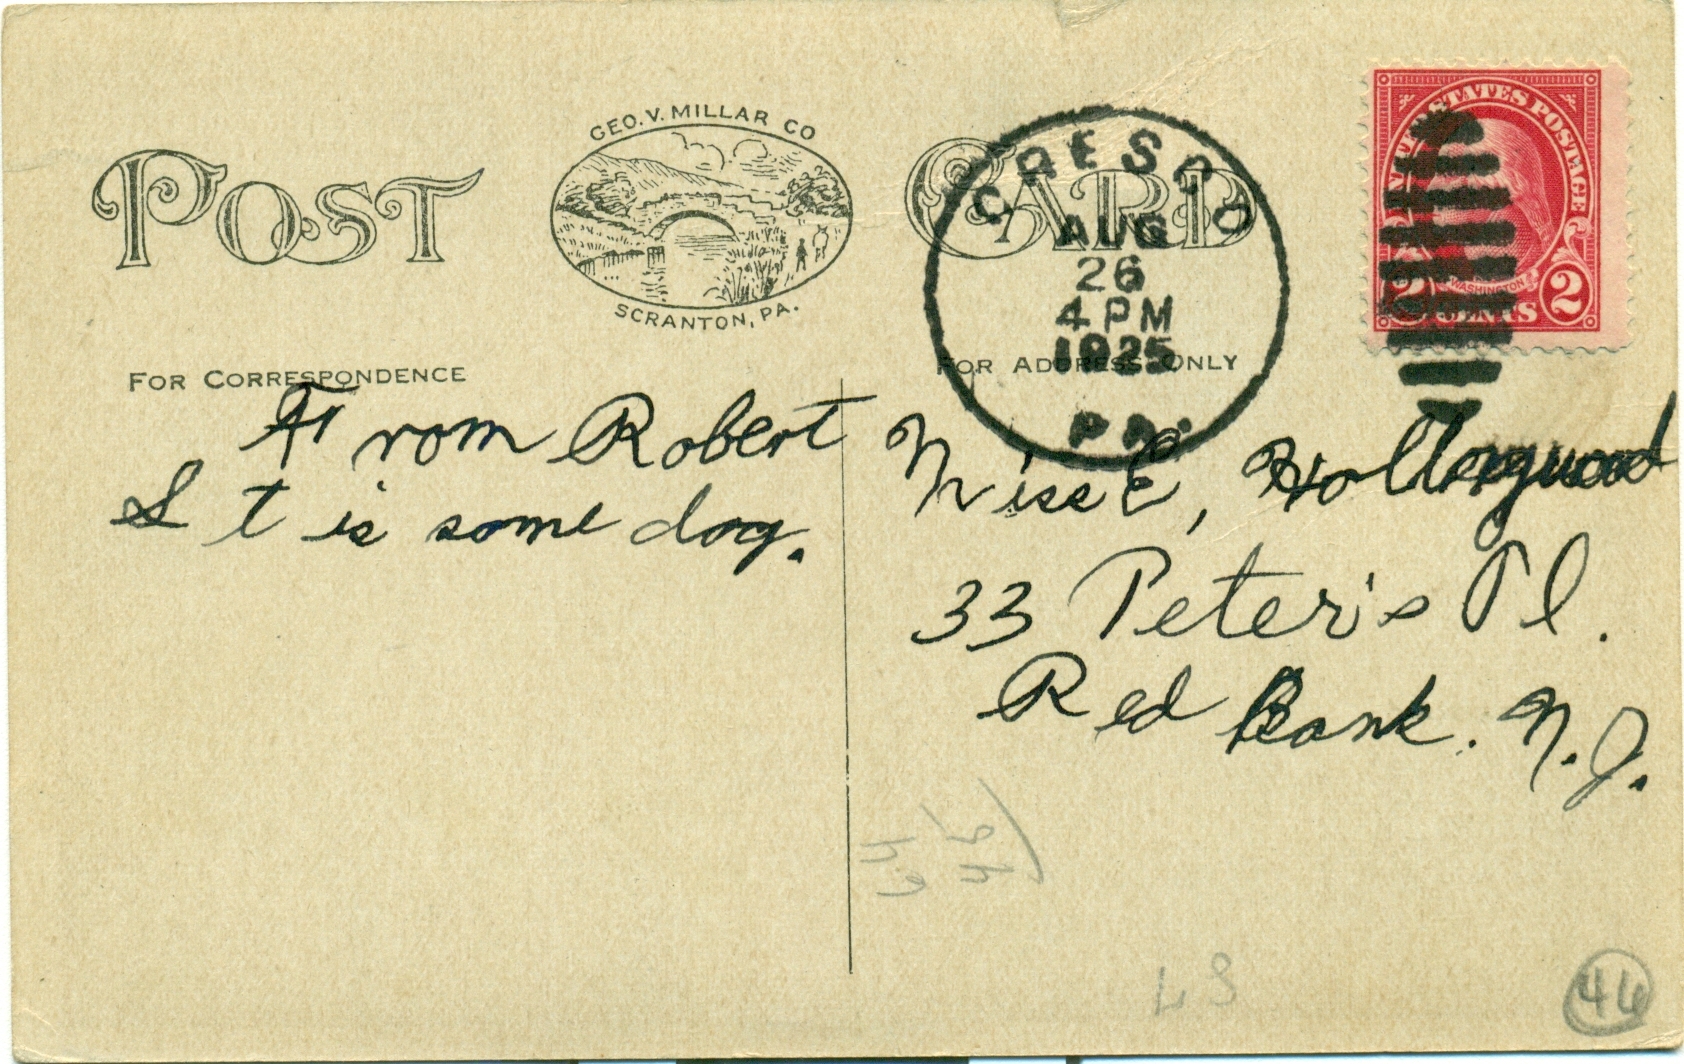 GEO. V. MILLAR CO
POST CARD
SCRANTON, PA.
CRESCO
AUG
26
4 PM
1925
PA.
UNITED STATES POSTAGE
WASHINGTON
2 CENTS 2
FOR CORRESPONDENCE
FOR ADDRESS ONLY
From Robert
It is some dog.
Miss E,
33 Peter's Pl.
Red Bank. N.J.
46